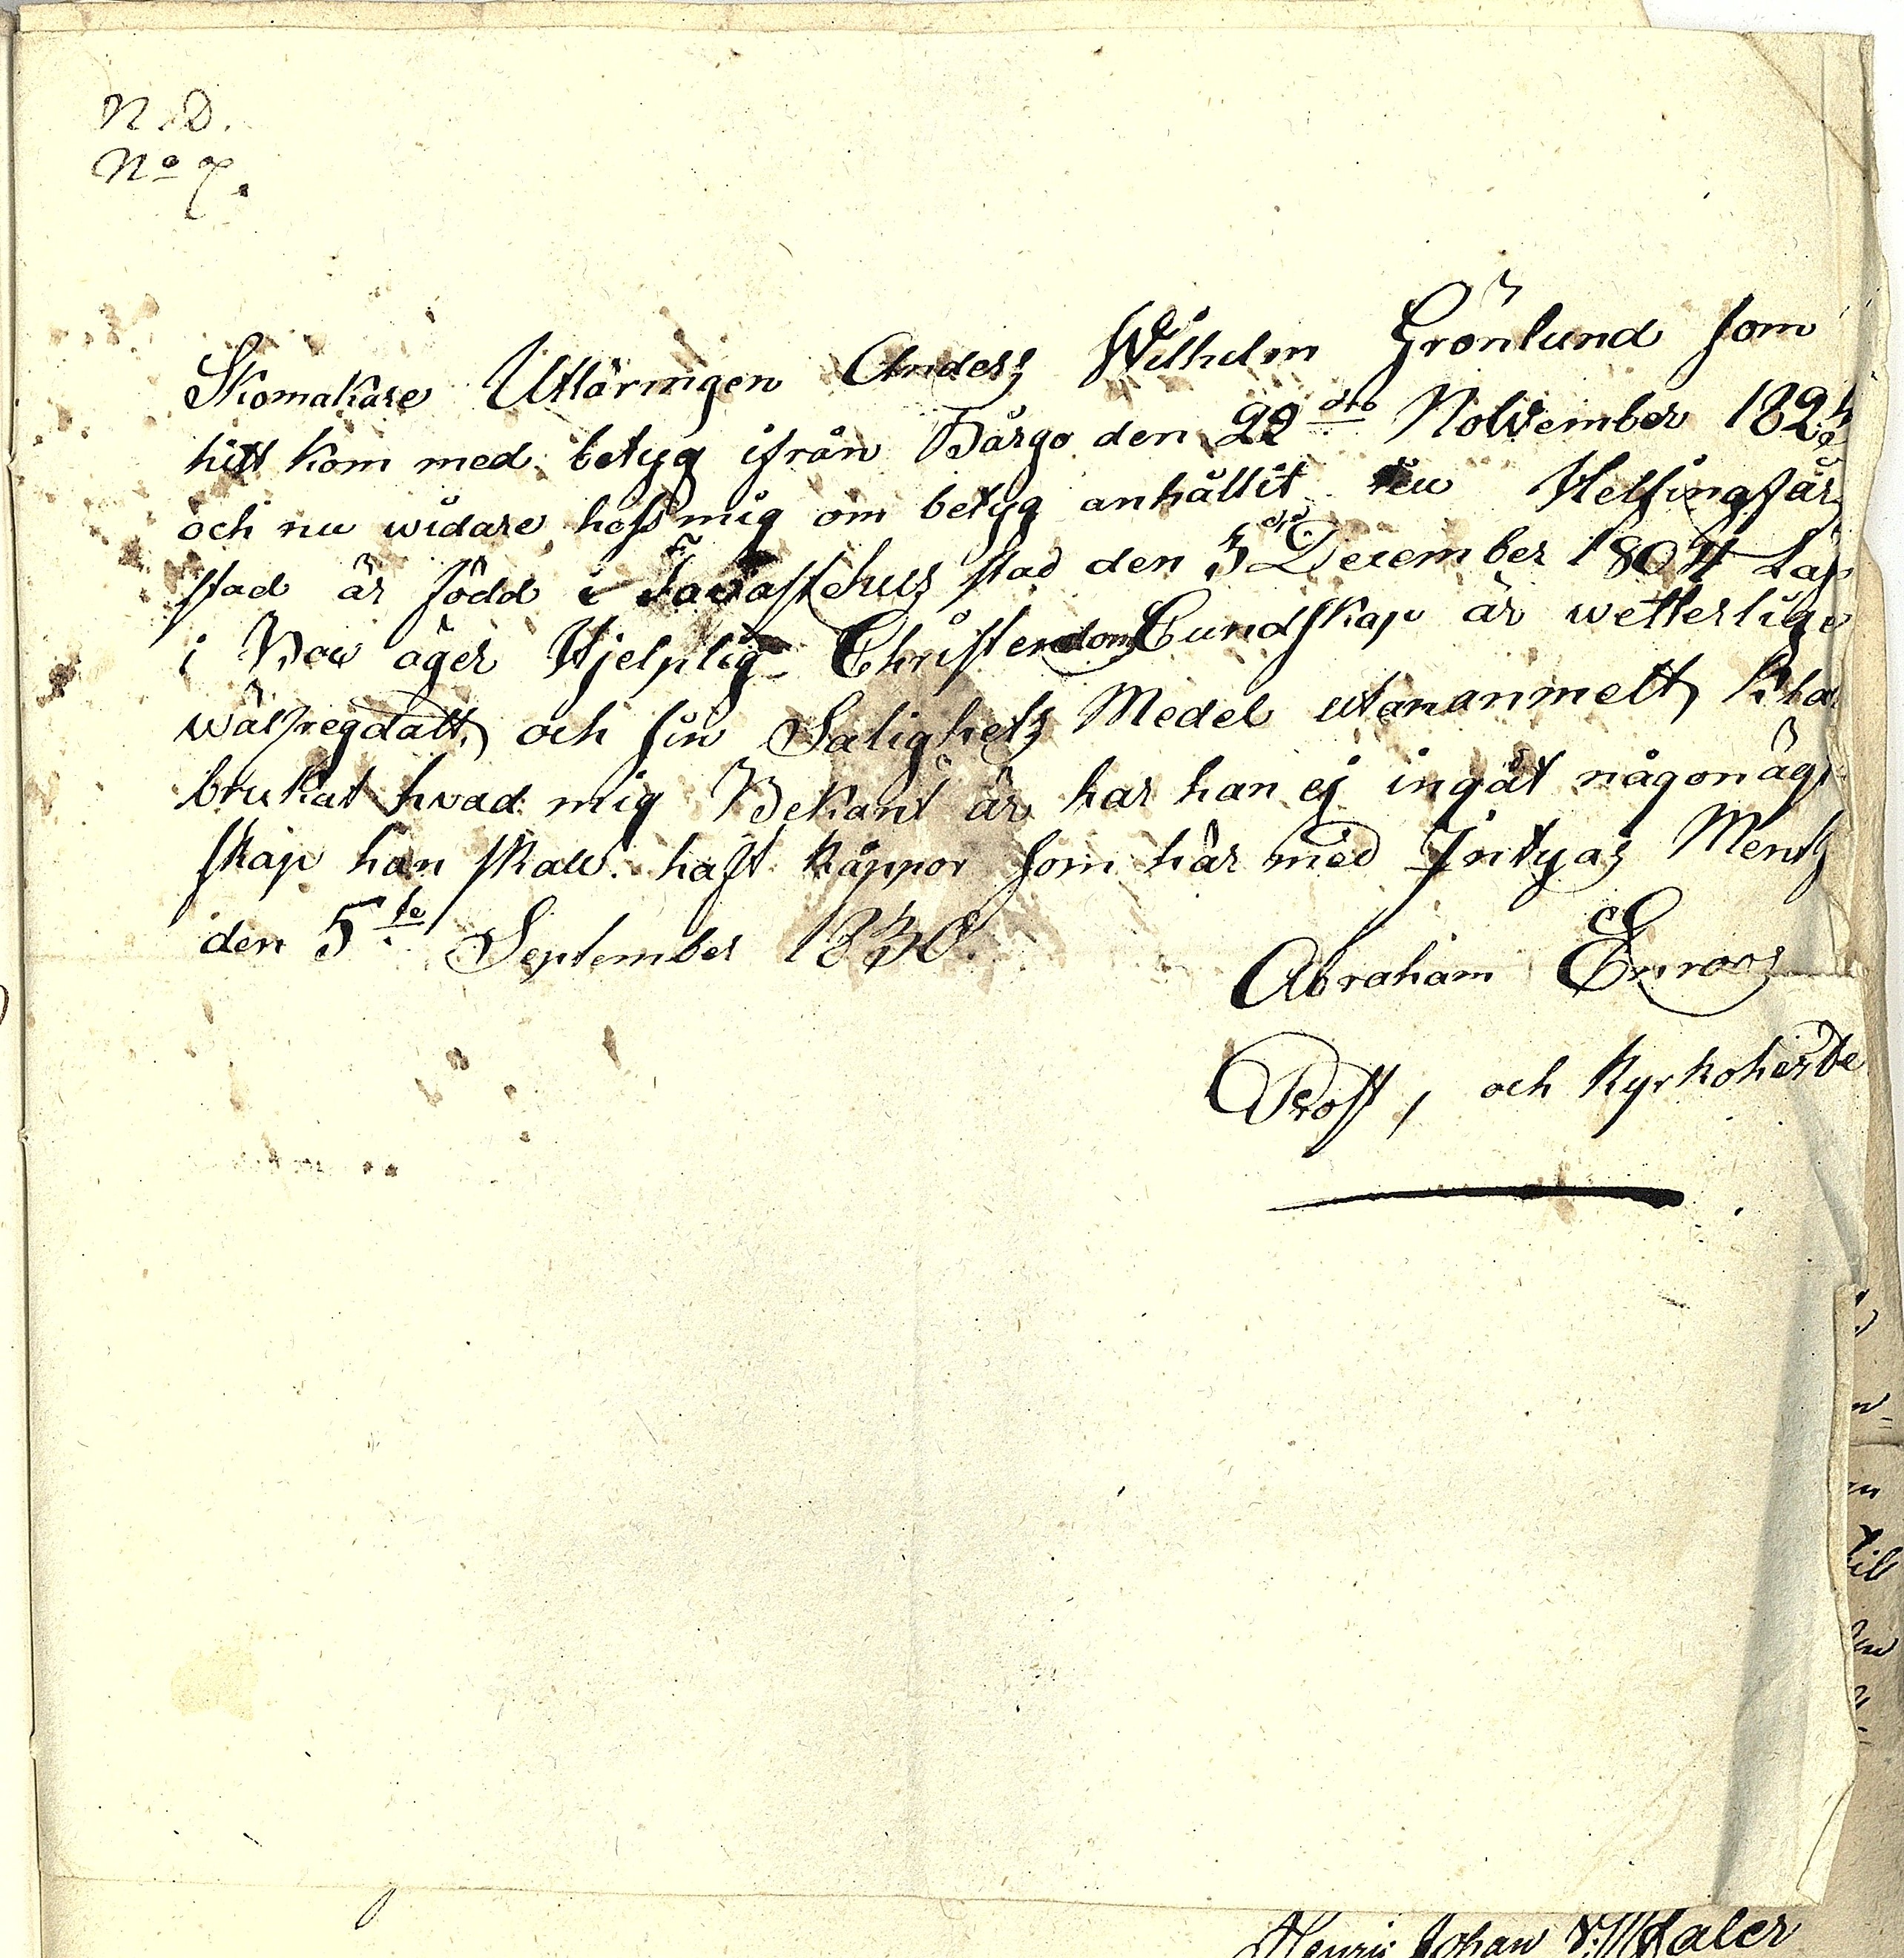 N. D.
No 7.
Skomakare Utläringen Anders Wilhelm Grönlund som
hitt kom med betyg ifrån Bårgo den 22dra November 182
och nu widare hoss mig om betyg anhållit till Helsingfår
stad är född i Tavastehus stad den 3die December 1804 Läs
i Bok äger Hjelplig Christendoms Cundskap är wetterlige
wälfregdatt, och sin Salighets Medel utan anmelt,
brukat hvad mig Bekant är har han ej ingåt någon ägt
skap han skall haft kåppor som här med Intygas Ments
den 5te September 1830.
Abraham Enroos
Prost, och Kyrkoherde
til
Henric Johan